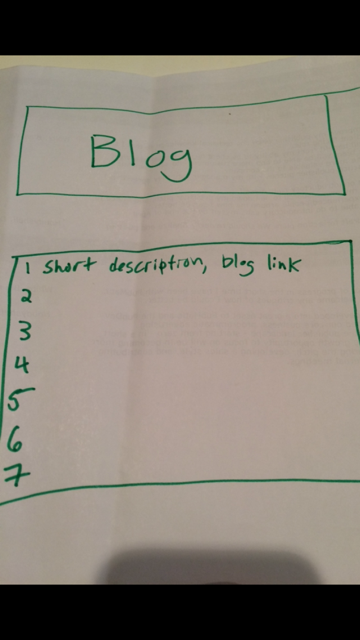 Blog
1 short description, blog link
2
3
4
5
6
7